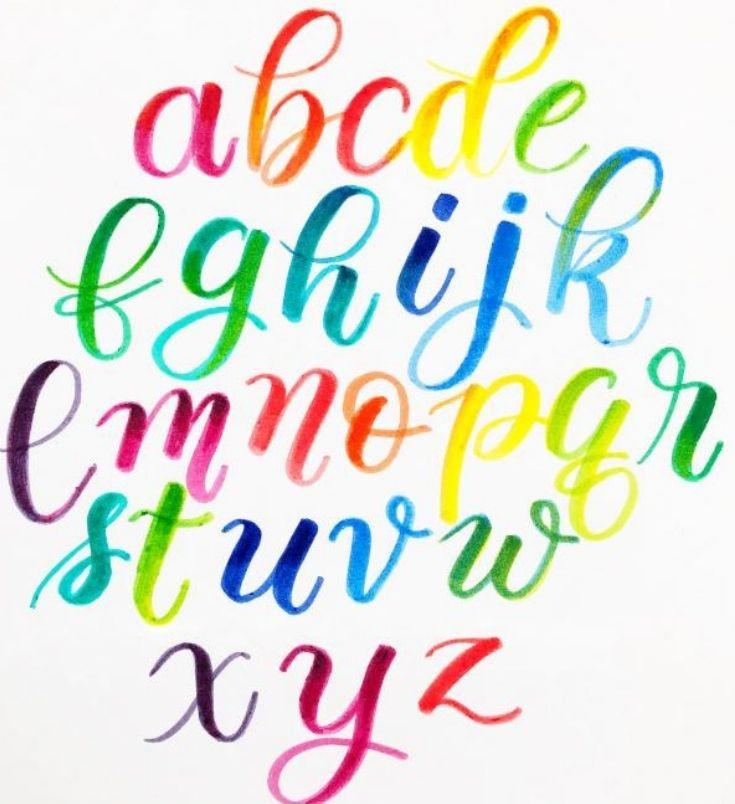 abcde
fghijk
lmnopqr
stuvw
xyz